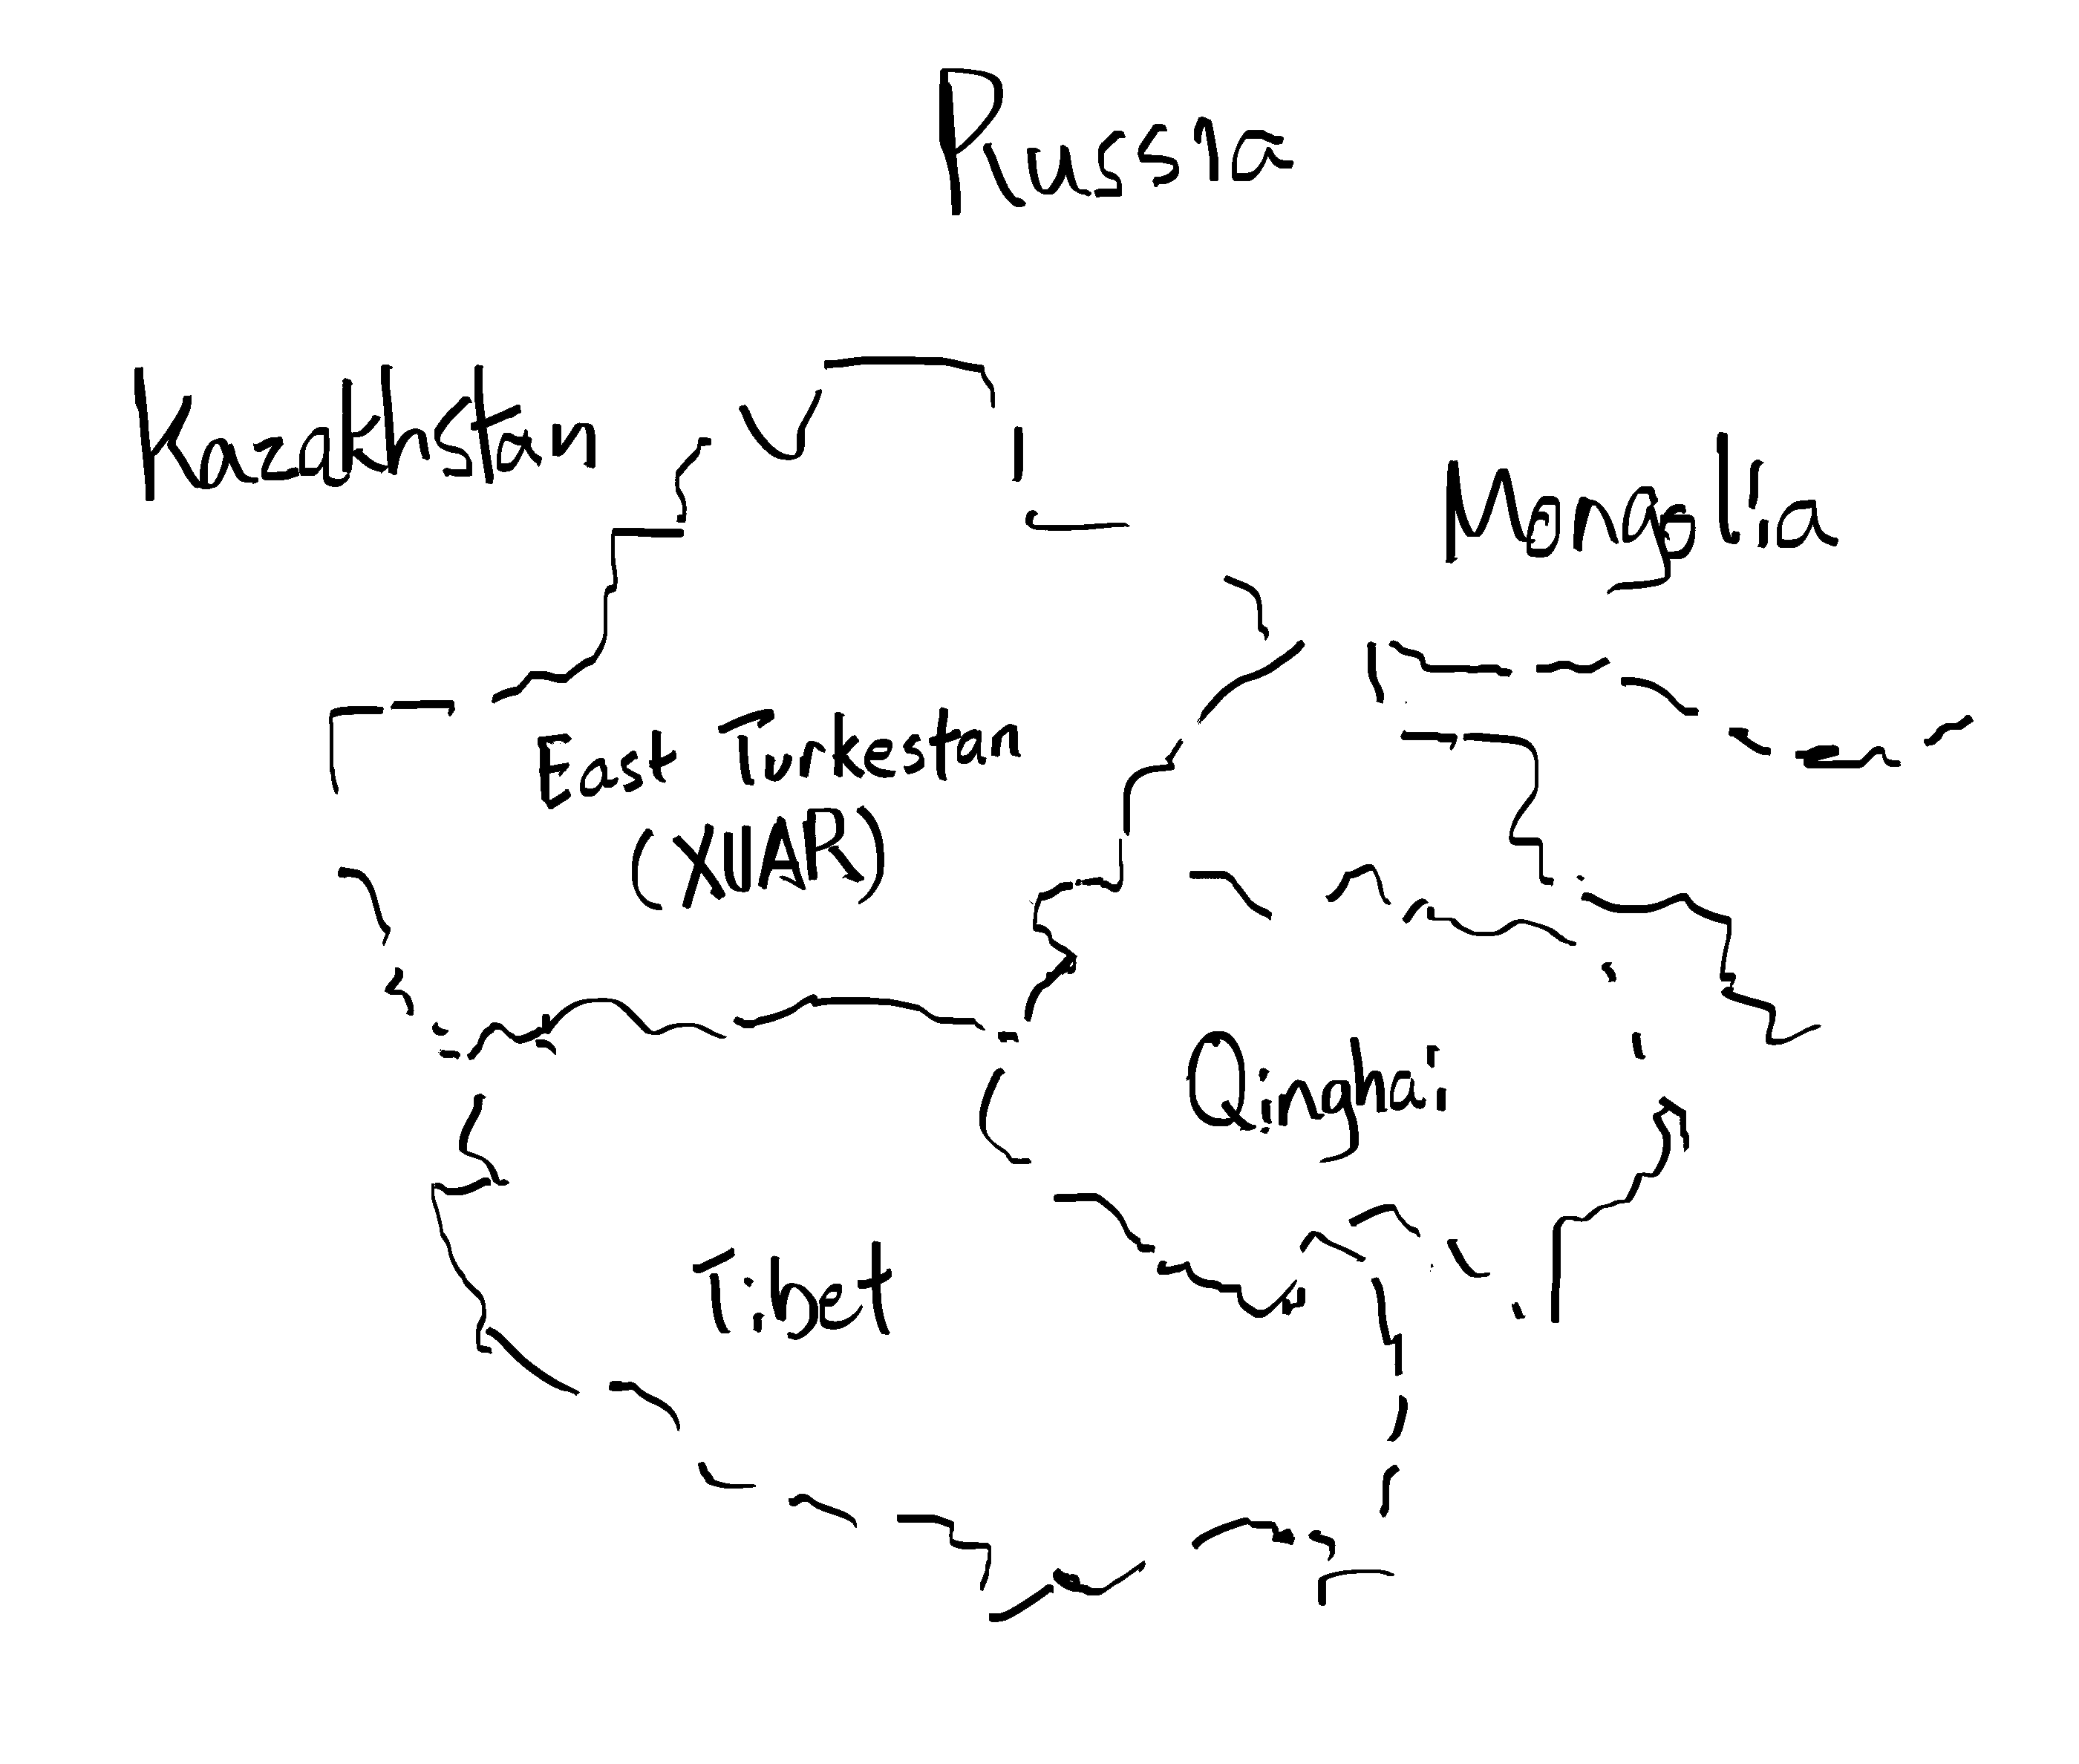 Russia
Kazakhstan
Mongolia
East Turkestan
(XUAR)
Qinghai
Tibet